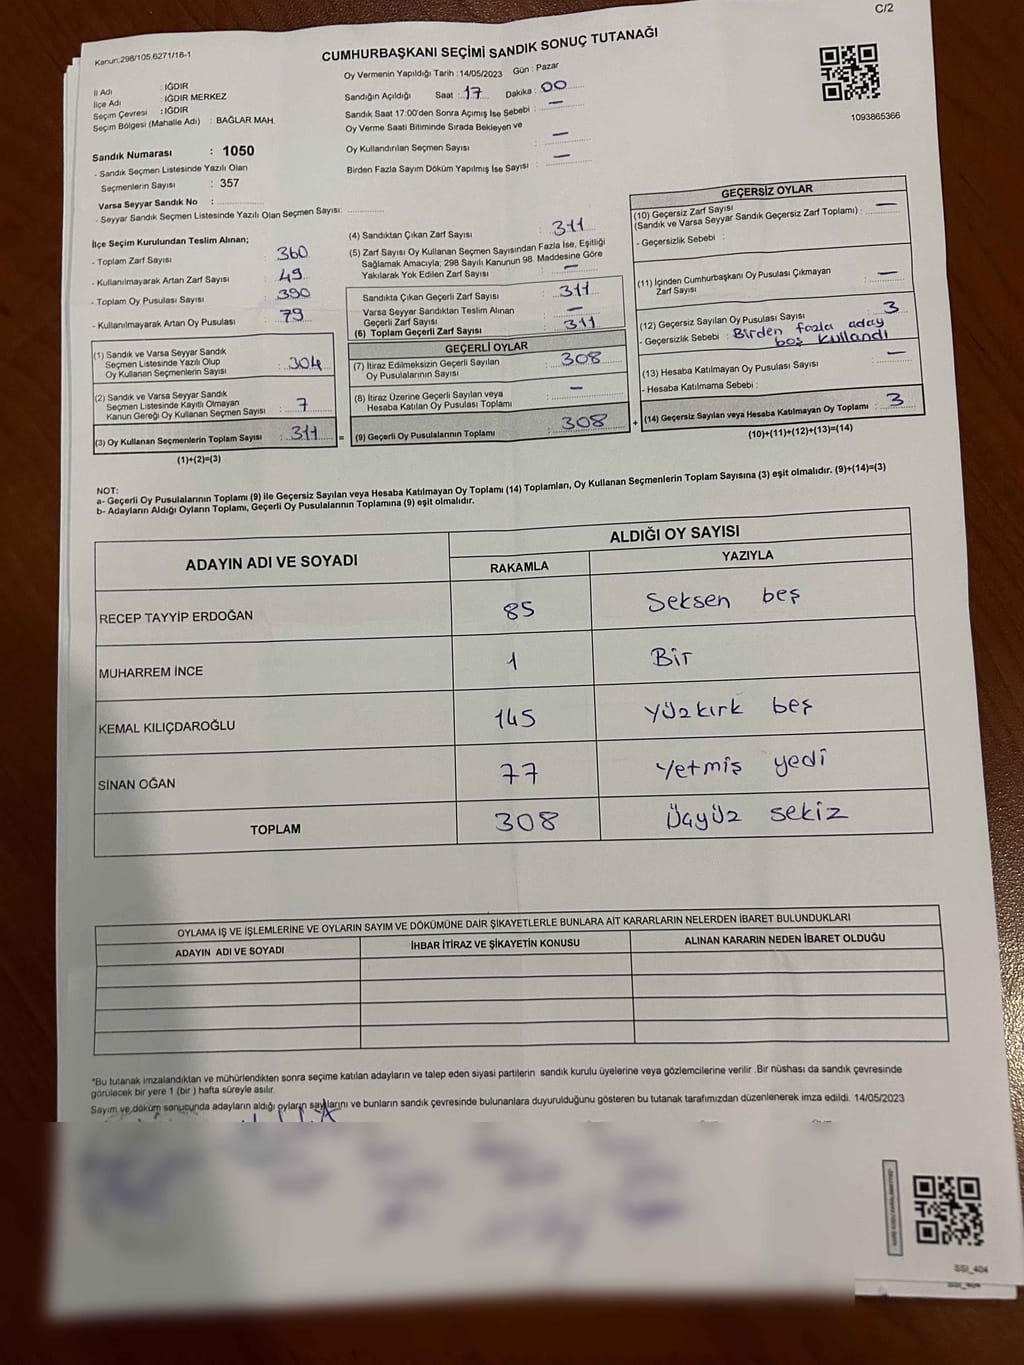 C/2
Kanun:298/105.6271/16-1
CUMHURBAŞKANI SEÇİMİ SANDIK SONUÇ TUTANAĞI
Oy Vermenin Yapıldığı Tarih :14/05/2023 Gün : Pazar
İl Adı : IĞDIR
İlçe Adı : IĞDIR MERKEZ
Seçim Çevresi : IĞDIR
Seçim Bölgesi (Mahalle Adı) : BAĞLAR MAH.
Sandığın Açıldığı Saat : 17 Dakika : 00
Sandık Saat 17:00'den Sonra Açımış İse Sebebi : —
Oy Verme Saati Bitiminde Sırada Bekleyen ve
Oy Kullandırılan Seçmen Sayısı : —
Birden Fazla Sayım Döküm Yapılmış İse Sayısı : —
1093865366
Sandık Numarası : 1050
- Sandık Seçmen Listesinde Yazılı Olan
Seçmenlerin Sayısı : 357
Varsa Seyyar Sandık No :
- Seyyar Sandık Seçmen Listesinde Yazılı Olan Seçmen Sayısı:
İlçe Seçim Kurulundan Teslim Alınan;
- Toplam Zarf Sayısı : 360
- Kullanılmayarak Artan Zarf Sayısı : 49
- Toplam Oy Pusulası Sayısı : 390
- Kullanılmayarak Artan Oy Pusulası : 79
(1) Sandık ve Varsa Seyyar Sandık
Seçmen Listesinde Yazılı Olup
Oy Kullanan Seçmenlerin Sayısı : 304
(2) Sandık ve Varsa Seyyar Sandık
Seçmen Listesinde Kayıtlı Olmayan
Kanun Gereği Oy Kullanan Seçmen Sayısı : 7
(3) Oy Kullanan Seçmenlerin Toplam Sayısı : 311
(1)+(2)=(3)
(4) Sandıktan Çıkan Zarf Sayısı : 311
(5) Zarf Sayısı Oy Kullanan Seçmen Sayısından Fazla İse, Eşitliği
Sağlamak Amacıyla; 298 Sayılı Kanunun 98. Maddesine Göre
Yakılarak Yok Edilen Zarf Sayısı : —
Sandıkta Çıkan Geçerli Zarf Sayısı : 311
Varsa Seyyar Sandıktan Teslim Alınan
Geçerli Zarf Sayısı : —
(6) Toplam Geçerli Zarf Sayısı : 311
GEÇERLİ OYLAR
(7) İtiraz Edilmeksizin Geçerli Sayılan
Oy Pusulalarının Sayısı : 308
(8) İtiraz Üzerine Geçerli Sayılan veya
Hesaba Katılan Oy Pusulası Toplamı : —
= (9) Geçerli Oy Pusulalarının Toplamı : 308
GEÇERSİZ OYLAR
(10) Geçersiz Zarf Sayısı
(Sandık ve Varsa Seyyar Sandık Geçersiz Zarf Toplamı) : —
- Geçersizlik Sebebi :
(11) İçinden Cumhurbaşkanı Oy Pusulası Çıkmayan
Zarf Sayısı : —
(12) Geçersiz Sayılan Oy Pusulası Sayısı : 3
- Geçersizlik Sebebi : Birden fazla aday
boş kullandı
(13) Hesaba Katılmayan Oy Pusulası Sayısı : —
- Hesaba Katılmama Sebebi :
+ (14) Geçersiz Sayılan veya Hesaba Katılmayan Oy Toplamı : 3
(10)+(11)+(12)+(13)=(14)
NOT:
a- Geçerli Oy Pusulalarının Toplamı (9) ile Geçersiz Sayılan veya Hesaba Katılmayan Oy Toplamı (14) Toplamları, Oy Kullanan Seçmenlerin Toplam Sayısına (3) eşit olmalıdır. (9)+(14)=(3)
b- Adayların Aldığı Oyların Toplamı, Geçerli Oy Pusulalarının Toplamına (9) eşit olmalıdır.
ADAYIN ADI VE SOYADI
ALDIĞI OY SAYISI
RAKAMLA YAZIYLA
RECEP TAYYİP ERDOĞAN 85 Seksen beş
MUHARREM İNCE 1 Bir
KEMAL KILIÇDAROĞLU 145 Yüzkırk beş
SİNAN OĞAN 77 Yetmiş yedi
TOPLAM 308 Üçyüz sekiz
OYLAMA İŞ VE İŞLEMLERİNE VE OYLARIN SAYIM VE DÖKÜMÜNE DAİR ŞİKAYETLERLE BUNLARA AİT KARARLARIN NELERDEN İBARET BULUNDUKLARI
ADAYIN ADI VE SOYADI İHBAR İTİRAZ VE ŞİKAYETİN KONUSU ALINAN KARARIN NEDEN İBARET OLDUĞU
*Bu tutanak imzalandıktan ve mühürlendikten sonra seçime katılan adayların ve talep eden siyasi partilerin sandık kurulu üyelerine veya gözlemcilerine verilir .Bir nüshası da sandık çevresinde
görülecek bir yere 1 (bir ) hafta süreyle asılır.
Sayım ve döküm sonucunda adayların aldığı oyların sayılarını ve bunların sandık çevresinde bulunanlara duyurulduğunu gösteren bu tutanak tarafımızdan düzenlenerek imza edildi. 14/05/2023
SSI_404